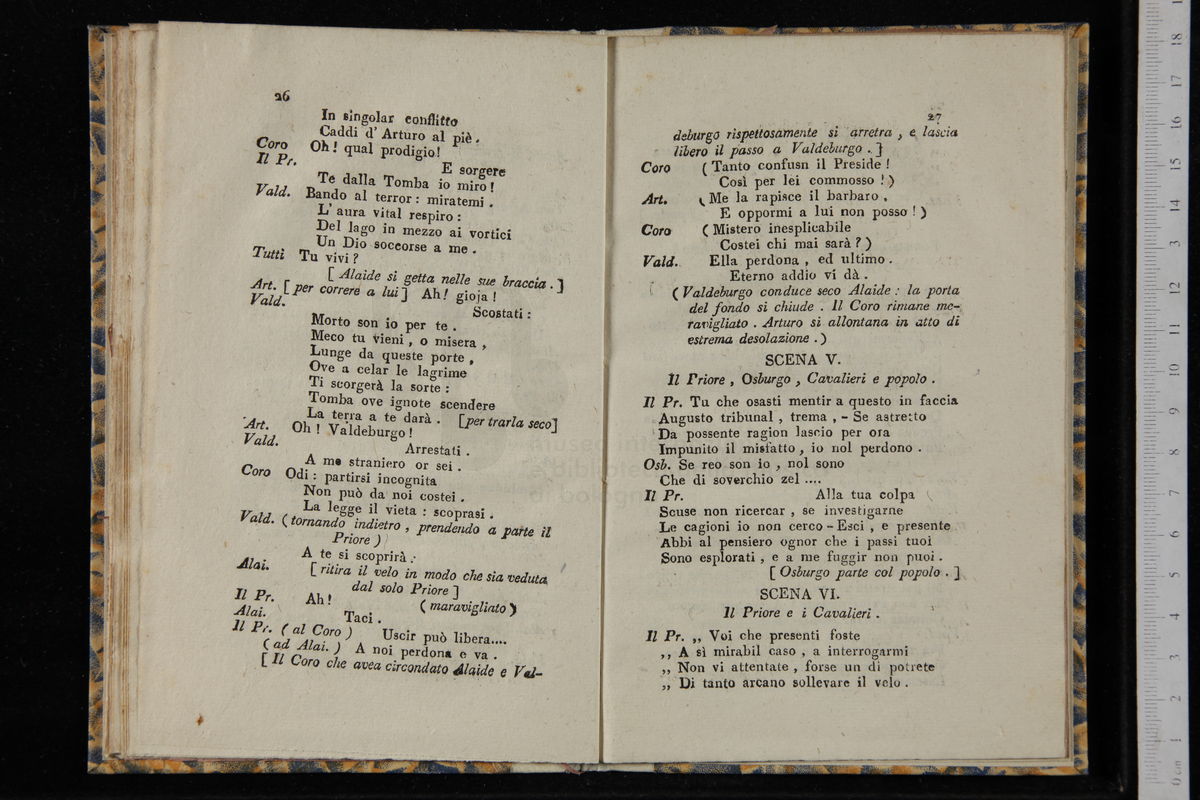 26
In singolar conflitto
Caddi d' Arturo al piè.
Coro Oh! qual prodigio!
Il Pr. E sorgere
Te dalla Tomba io miro!
Vald. Bando al terror: miratemi.
L' aura vital respiro:
Del lago in mezzo ai vortici
Un Dio soccorse a me.
Tutti Tu vivi?
[ Alaide si getta nelle sue braccia. ]
Art. [ per correre a lui ] Ah! gioja!
Vald. Scostati:
Morto son io per te.
Meco tu vieni, o misera,
Lunge da queste porte,
Ove a celar le lagrime
Ti scorgerà la sorte:
Tomba ove ignote scendere
La terra a te darà. [ per trarla seco ]
Art. Oh! Valdeburgo!
Vald. Arrestati.
A me straniero or sei.
Coro Odi: partirsi incognita
Non può da noi costei.
La legge il vieta: scoprasi.
Vald. ( tornando indietro, prendendo a parte il
Priore )
A te si scoprirà:
Alai. [ ritira il velo in modo che sia veduta
dal solo Priore ]
Il Pr. Ah! ( maravigliato )
Alai. Taci.
Il Pr. ( al Coro ) Uscir può libera....
( ad Alai. ) A noi perdona e va.
[ Il Coro che avea circondato Alaide e Val-
27
deburgo rispettosamente si arretra, e lascia
libero il passo a Valdeburgo. ]
Coro ( Tanto confusn il Preside!
Così per lei commosso! )
Art. ( Me la rapisce il barbaro,
E oppormi a lui non posso! )
Coro ( Mistero inesplicabile
Costei chi mai sarà? )
Vald. Ella perdona, ed ultimo.
Eterno addio vi dà.
( Valdeburgo conduce seco Alaide: la porta
del fondo si chiude. Il Coro rimane me-
ravigliato. Arturo si allontana in atto di
estrema desolazione. )
SCENA V.
Il Priore, Osburgo, Cavalieri e popolo.
Il Pr. Tu che osasti mentir a questo in faccia
Augusto tribunal, trema, - Se astretto
Da possente ragion lascio per ora
Impunito il misfatto, io nol perdono.
Osb. Se reo son io, nol sono
Che di soverchio zel ....
Il Pr. Alla tua colpa
Scuse non ricercar, se investigarne
Le cagioni io non cerco - Esci, e presente
Abbi al pensiero ognor che i passi tuoi
Sono esplorati, e a me fuggir non puoi.
[ Osburgo parte col popolo. ]
SCENA VI.
Il Priore e i Cavalieri.
Il Pr. ,, Voi che presenti foste
,, A sì mirabil caso, a interrogarmi
,, Non vi attentate, forse un dì potrete
,, Di tanto arcano sollevare il velo.
museo inte
e bibliote
di bologn
0 cm 1 2 3 4 5 6 7 8 9 10 11 12 13 14 15 16 17 18